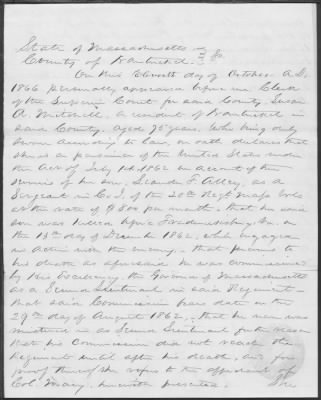 State of Massachusetts
County of Nantucket } SS.
On this Eleventh day of October A.D.
1866 personally appeared before me Clerk
of the Supreme Court for said County, Susan
A. Mitchell, a resident of Nantucket in
said County, aged 75 years, who being duly
sworn according to law, on oath declares that
she is a pensioner of the United States under
the Act of July 14th 1862 on account of the
services of her son, Leander F. Alley, as a
Sergeant in Co. I of the 20th Regt Mass Vols
at the rate of $8.00 per month, that her said
son was killed before Fredericksburg, Va. on
the 13th day of December 1862, while engaged
in action with the enemy, that previous to
his death as aforesaid he was commissioned
by His Excellency the Governor of Massachusetts
as a Second Lieutenant in said Regiment
that said Commission bears date on the
29th day of August 1862, that he never was
mustered in as Second Lieutenant for the reason
that his Commission did not reach the
Regiment until after his death, and for
proof thereof she refers to the affidavit of
Col. Macy, herewith presented. She